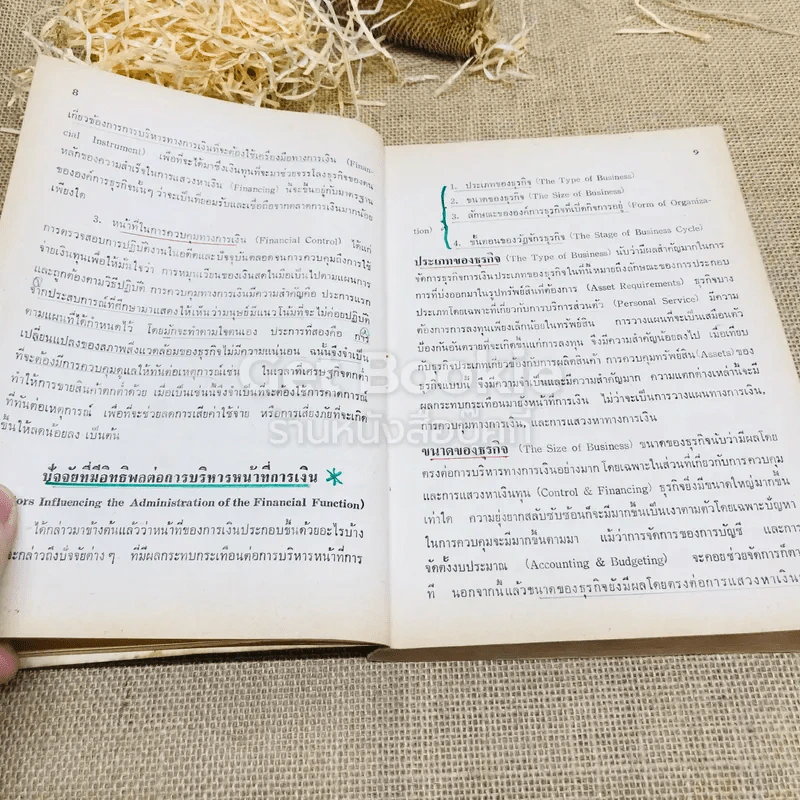 8
เกี่ยวข้องการการบริหารทางการเงินที่จะต้องใช้เครื่องมือทางการเงิน (Finan-
cial Instrument) เพื่อที่จะได้มาซึ่งเงินทุนที่จะมาช่วยจรรโลงธุรกิจของตน
หลักของความสำเร็จในการแสวงหาเงิน (Financing) นี้จะขึ้นอยู่กับมาตรฐาน
ขององค์การธุรกิจนั้นๆ ว่าจะเป็นที่ยอมรับและเชื่อถือจากตลาดการเงินมากน้อย
เพียงใด
3. หน้าที่ในการควบคุมทางการเงิน (Financial Control) ได้แก่
การตรวจสอบการปฏิบัติงานในอดีตและปัจจุบันตลอดจนการควบคุมถึงการใช้
จ่ายเงินทุนเพื่อให้มั่นใจว่า การหมุนเวียนของเงินสดในมือเป็นไปตามแผนการ
และถูกต้องตามวิธีปฏิบัติ การควบคุมทางการเงินมีความสำคัญคือ ประการแรก
จากประสบการณ์ที่ศึกษามาแสดงให้เห็นว่ามนุษย์มีแนวโน้มที่จะไม่ค่อยปฏิบัติ
ตามแผนที่ได้กำหนดไว้ โดยมักจะทำตามใจตนเอง ประการที่สองคือ การ
เปลี่ยนแปลงของสภาพสิ่งแวดล้อมของธุรกิจไม่มีความแน่นอน ฉะนั้นจึงจำเป็น
ที่จะต้องมีการควบคุมดูแลให้ทันต่อเหตุการณ์เช่น ในเวลาที่เศรษฐกิจตกต่ำ
ทำให้การขายสินค้าตกต่ำด้วย เมื่อเป็นเช่นนี้จึงจำเป็นที่จะต้องใช้การคาดการณ์
ที่ทันต่อเหตุการณ์ เพื่อที่จะช่วยลดการเสียค่าใช้จ่าย หรือการเสี่ยงภัยที่จะเกิด
ขึ้นให้ลดน้อยลง เป็นต้น
ปัจจัยที่มีอิทธิพลต่อการบริหารหน้าที่การเงิน
ors Influencing the Administration of the Financial Function)
ได้กล่าวมาข้างต้นแล้วว่าหน้าที่ของการเงินประกอบขึ้นด้วยอะไรบ้าง
จะกล่าวถึงปัจจัยต่าง ๆ ที่มีผลกระทบกระเทือนต่อการบริหารหน้าที่การ
9
1. ประเภทของธุรกิจ (The Type of Business)
2. ขนาดของธุรกิจ (The Size of Business)
3. ลักษณะขององค์การธุรกิจที่เปิดกิจการอยู่ (Form of Organiza-
tion)
4. ขั้นตอนของวัฏจักรธุรกิจ (The Stage of Business Cycle)
ประเภทของธุรกิจ (The Type of Business) นับว่ามีผลสำคัญมากในการ
จัดการธุรกิจการเงินประเภทของธุรกิจในที่นี้หมายถึงลักษณะของการประกอบ
การที่บ่งออกมาในรูปทรัพย์สินที่ต้องการ (Asset Requirements) ธุรกิจบาง
ประเภทโดยเฉพาะที่เกี่ยวกับการบริการส่วนตัว (Personal Service) มีความ
ต้องการการลงทุนเพียงเล็กน้อยในทรัพย์สิน การวางแผนที่จะเป็นเสมือนตัว
ป้องกันอันตรายที่จะเกิดขึ้นแก่การลงทุน จึงมีความสำคัญน้อยลงไป เมื่อเทียบ
กับธุรกิจประเภทเกี่ยวข้องกับการผลิตสินค้า การควบคุมทรัพย์สิน (Assets) ของ
ธุรกิจแบบนี้ จึงมีความจำเป็นและมีความสำคัญมาก ความแตกต่างเหล่านี้จะมี
ผลกระทบกระเทือนมายังหน้าที่การเงิน ไม่ว่าจะเป็นการวางแผนทางการเงิน,
การควบคุมทางการเงิน, และการแสวงหาทางการเงิน
ขนาดของธุรกิจ (The Size of Business) ขนาดของธุรกิจนับว่ามีผลโดย
ตรงต่อการบริหารทางการเงินอย่างมาก โดยเฉพาะในส่วนที่เกี่ยวกับการควบคุม
และการแสวงหาเงินทุน (Control & Financing) ธุรกิจยิ่งมีขนาดใหญ่มากขึ้น
เท่าใด ความยุ่งยากสลับซับซ้อนก็จะมีมากขึ้นเป็นเงาตามตัวโดยเฉพาะปัญหา
ในการควบคุมจะมีมากขึ้นตามมา แม้ว่าการจัดการของการบัญชี และการ
จัดตั้งงบประมาณ (Accounting & Budgeting) จะคอยช่วยจัดการก็ตา
ที่ นอกจากนี้แล้วขนาดของธุรกิจยังมีผลโดยตรงต่อการแสวงหาเงิน
ร้านหนังสือบุ๊คกี้